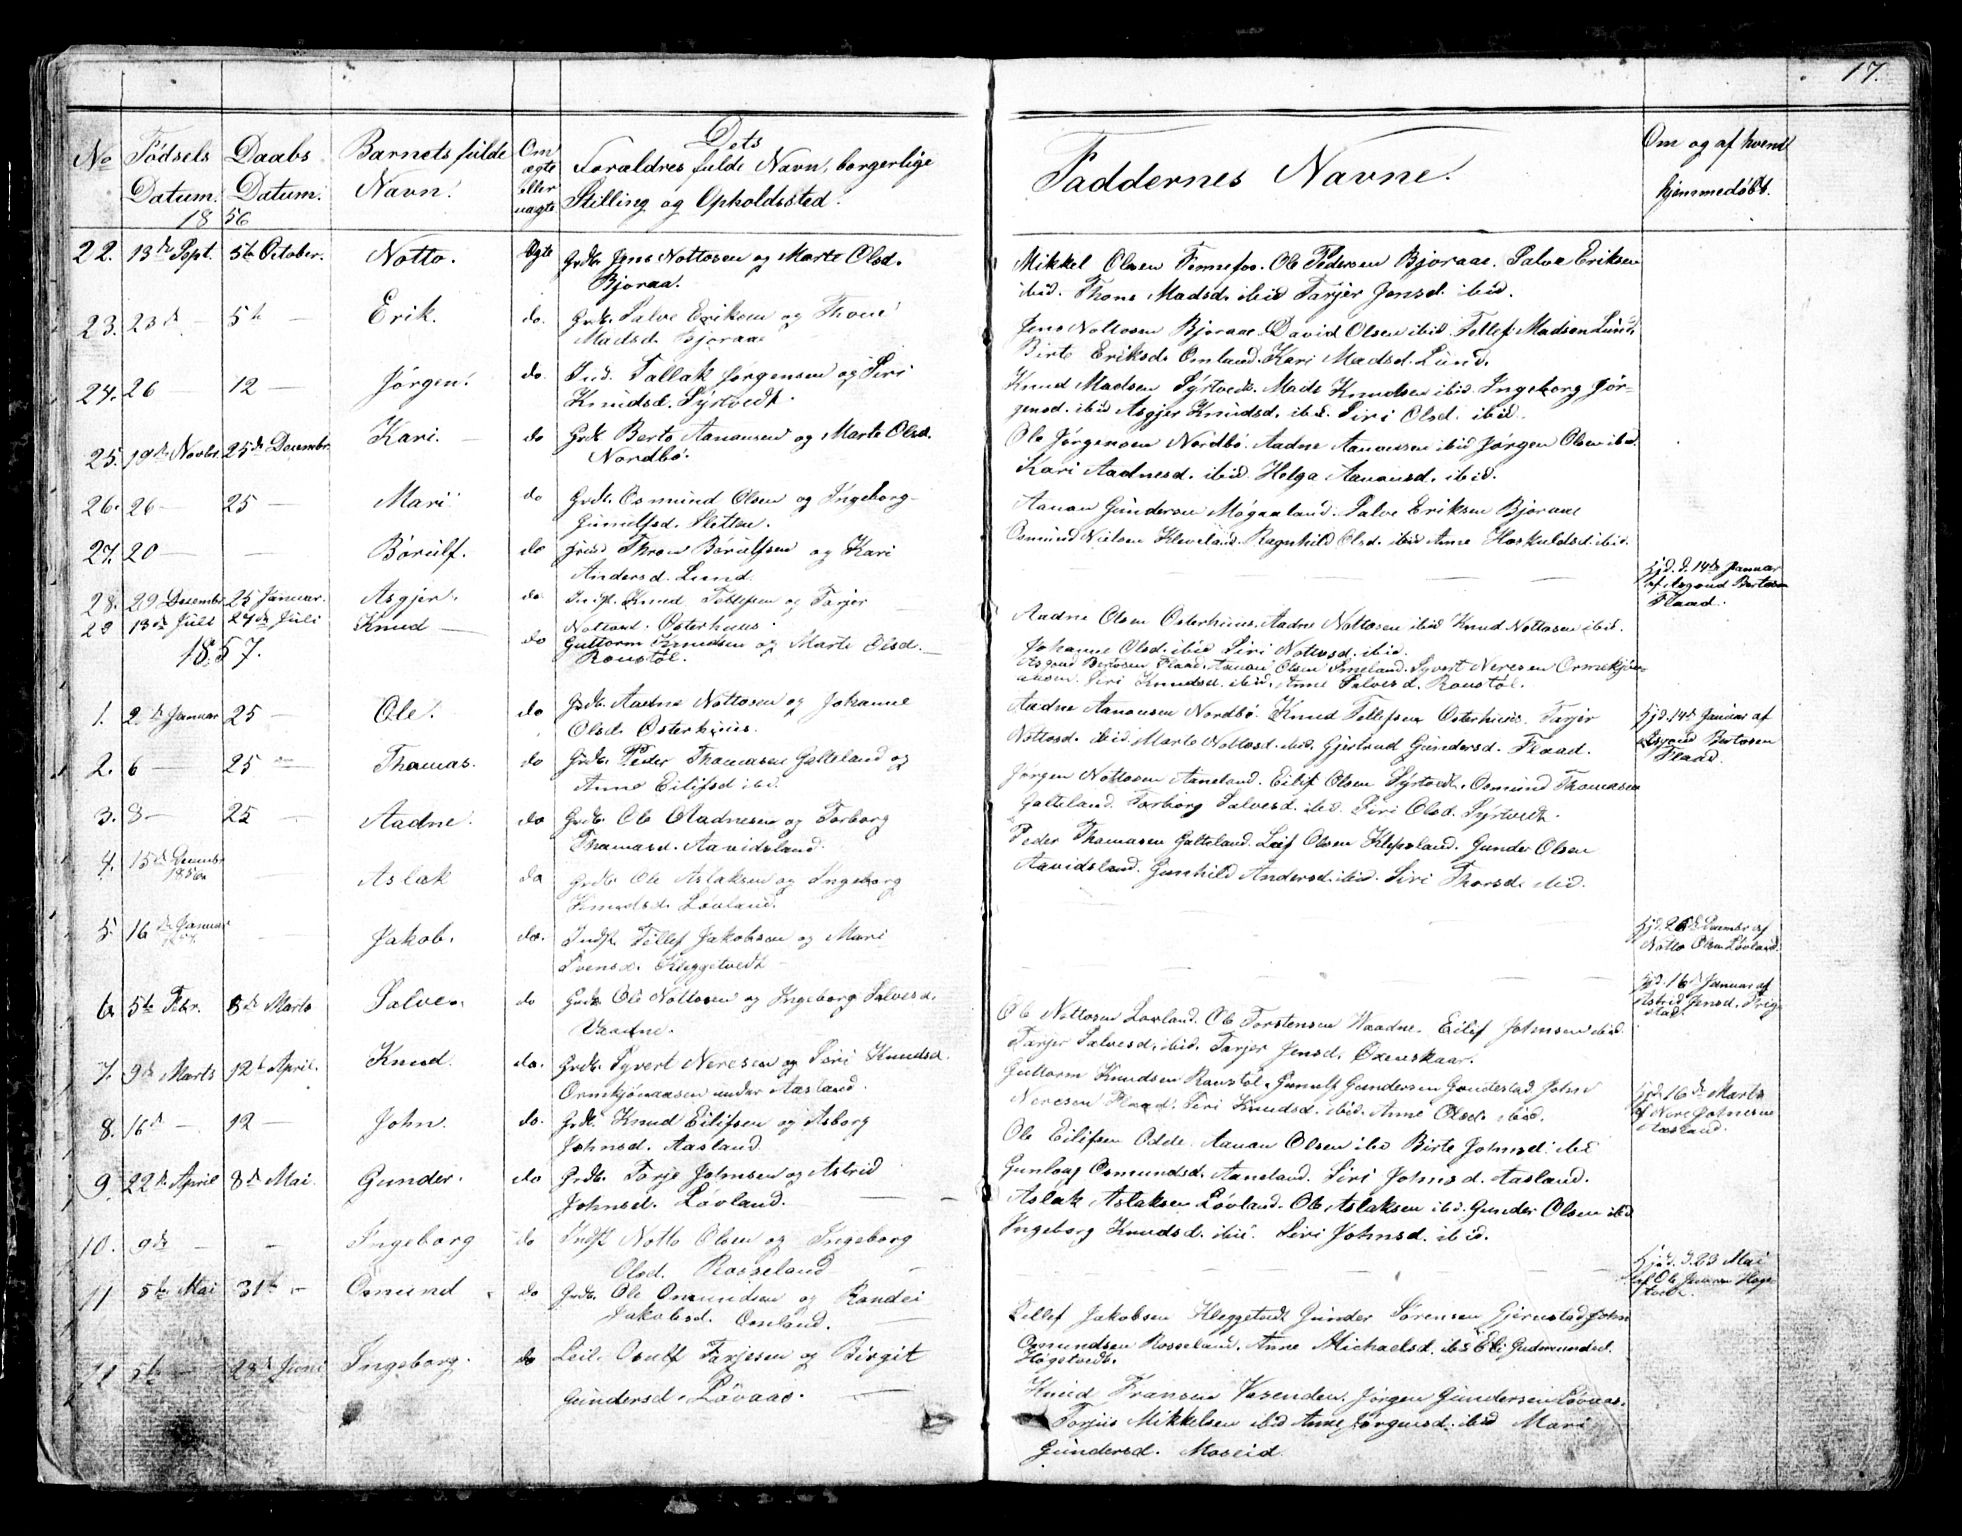 17.
No
Fødsels Datum.
Daabs Datum.
Barnets fulde Navn.
Om ægte eller uægte
Dets Forældres fulde Navn, borgerlige Stilling og Opholdssted.
Faddernes Navne.
Om og af hvem hjemmedøbt.
1856
22. 13de Sept. 5te October. Notto. Ægte Grdb. Jens Nottosen og Marte Olsd.
Bjoraa.
Mikkel Olsen Fennefos. Ole Pedersen Bjoraae. Salve Eriksen
ibid. Thone Madsd. ibid Tarjer Jensd. ibid.
23. 23d — 5te — Erik. do. Grdb. Salve Eriksen og Thone
Madsd. Bjoraae
Jens Nottosen Bjoraae. David Olsen ibid. Tellef Madsen Lund.
Birte Eriksd. Omland. Kari Madsd. Lund.
24. 26 12 — Jørgen. do. Ind. Tallak Jørgensen og Siri
Knudsd. Syrtvedt.
Knud Madsen Syrtvedt. Mads Knudsen ibid. Ingeborg Jør-
gensd. ibid Asgjer Knudsd. ibid. Siri Olsd. ibid.
25. 19de Novbr. 25de Decembr. Kari. do Grdb. Berte Aanonsen og Marte Olsd.
Nordbø.
Ole Jørgensen Nordbø. Aadne Aanonsen ibid Jørgen Olsen ibid.
Kari Aadnesd. ibid. Helga Aanonsd. ibid.
26. 26 — 25 — Mari do Grdb. Osmund Olsen og Ingeborg
Gunulfsd. Sletten.
Aanon Gundersen Møgaaland. Salve Eriksen Bjoraae
Osmund Nielsen Kleveland. Ragnhild Olsd. ibid Anne Hoskuldsd. ibid.
27. 20 — — Børulf. do Thron Børulfsen og Kari
Andersd. Lund.
hjd. d. 14de Januar
af Asgoud Bertosen
Flaad.
28. 29 Decembr 25 Januar. Asgjer. do. Indst. Knud Tellefsen og Tarjer
Nottosd. Osterhuus.
Aadne Olsen Osterhuus. Aadne Nottosen ibid Knud Nottosen ibid.
Johanne Olsd. ibid Siri Nottosd. ibid.
29 13de Juli 27de Juli Knud — do Guttorm Knudsen og Marte Olsd.
Roustøl.
Asgoud Bertosen Flaad. Aanon Olsen Smeland. Syvert Neresen Ormekjøn-
aasen. Siri Knudsd. ibid. Anne Salvesd. Roustøl.
1857.
1. 2de Januar 25 — Ole. do Grdb. Aadne Nottosen og Johanne
Olsd. Osterhuus.
Aadne Aanonsen Nordbø. Knud Tellefsen Osterhuus. Tarjer
Nottosd. ibid. Marte Nottosd. ibid. Gjertrud Gundersd. Flaad.
hjd. 14de Januar af
Asgoud Bertosen
Flaad.
2. 6 — 25 — Thomas. do Grdb. Peder Thomasen Galteland og
Anne Eilifsd ibid.
Jørgen Nottosen Aaneland. Eilif Olsen Syrtvedt. Osmund Thomasen
Galteland. Torborg Salvesd. ibid. Siri Olsd. Syrtvedt.
3. 8 — 25 — Aadne. do Grdb. Ole Aadnesen og Torborg
Thomasd. Aavidsland.
Peder Thomasen Galteland. Leif Olsen Klepsland. Gunder Olsen
Aavidsland. Gunhild Andersd. ibid. Siri Thorsd. ibid.
4. 15de Decembr 1856 — Aslak do Grdb. Ole Aslaksen og Ingeborg
Knudsd. Lovland.
hjd. 26de Decembr af
Notto Olsen Lovland.
5. 16de Januar 1857 — Jakob. do. Indst. Tellef Jakobsen og Mari
Svensd. Kleggetvedt
hjd. 16de Januar af
Astrid Jensd. Frig-
stad.
6. 5te Febr. 8de Marts Salve. do Grdb. Ole Nottosen og Ingeborg Salvesd.
Vaadne.
Ole Nottosen Lovland. Ole Torstensen Waadne. Eilif Johnsen ibid.
Tarjer Salvesd. ibid. Tarjer Jensd. Oxenskaar.
7. 9de Marts 12te April. Knud. do. Grdb. Syvert Neresen og Siri Knudsd.
Ormkjønaasen under Aasland.
Guttorm Knudsen Roustøl. Gunulf Gundersen John
Neresen Flaad. Siri Knudsd. ibid. Anne Olsd. ibid.
hjd. 16de Marts
af Nere Johnsen
Aasland.
8. 16de — 12 — John. do. Grdb. Knud Eilifsen og Asborg
Johnsd. Aasland.
Ole Eilifsen Odde. Aanon Olsen ibid Birte Johnsd. ibid
Gunlaug Osmundsd. Aaneland. Siri Johnsd. Aasland.
9. 22de April 8de Mai. Gunder. do Grdb. Torje Johnsen og Astrid
Johnsd. Lovland.
Aslak Aslaksen Lovland. Ole Aslaksen ibid. Gunder Olsen ibid
Ingeborg Knudsd. ibid. Siri Johnsd. ibid.
10. 9de — — Ingeborg do Indst Notto Olsen og Ingeborg
Olsd. Rosseland
hjd. d. 23 Mai
af Ole
11 5te Mai 31te — Osmund do Grdb. Ole Osmundsen og Randei
Jakobsd. Omland.
Tellef Jakobsen Kleggetvedt Gunder Sørensen Gjerustad John
Osmundsen Rosseland. Anne Michaelsd. ibid Eli Gudmundsd.
Høgetvedt.
12 5te — 28de Juni Ingeborg. do Leil. Osulf Tarjesen og Birgit
Gundersd. Løvaas.
Knud Fransen Vesenden. Jørgen Gundersen Løvaas.
Torjus Mikkelsen ibid Anne Jørgensd. ibid Mari
Gundersd. Moseid